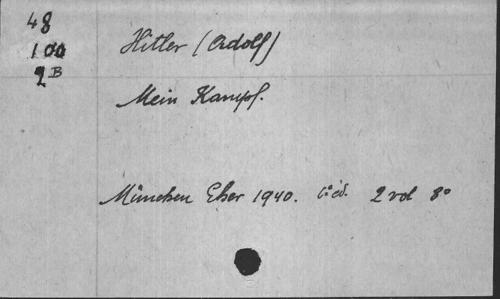 48
100
2 B
Hitler (Adolf)
Mein Kampf.
München Eher 1940. éd. 2 vol 8°